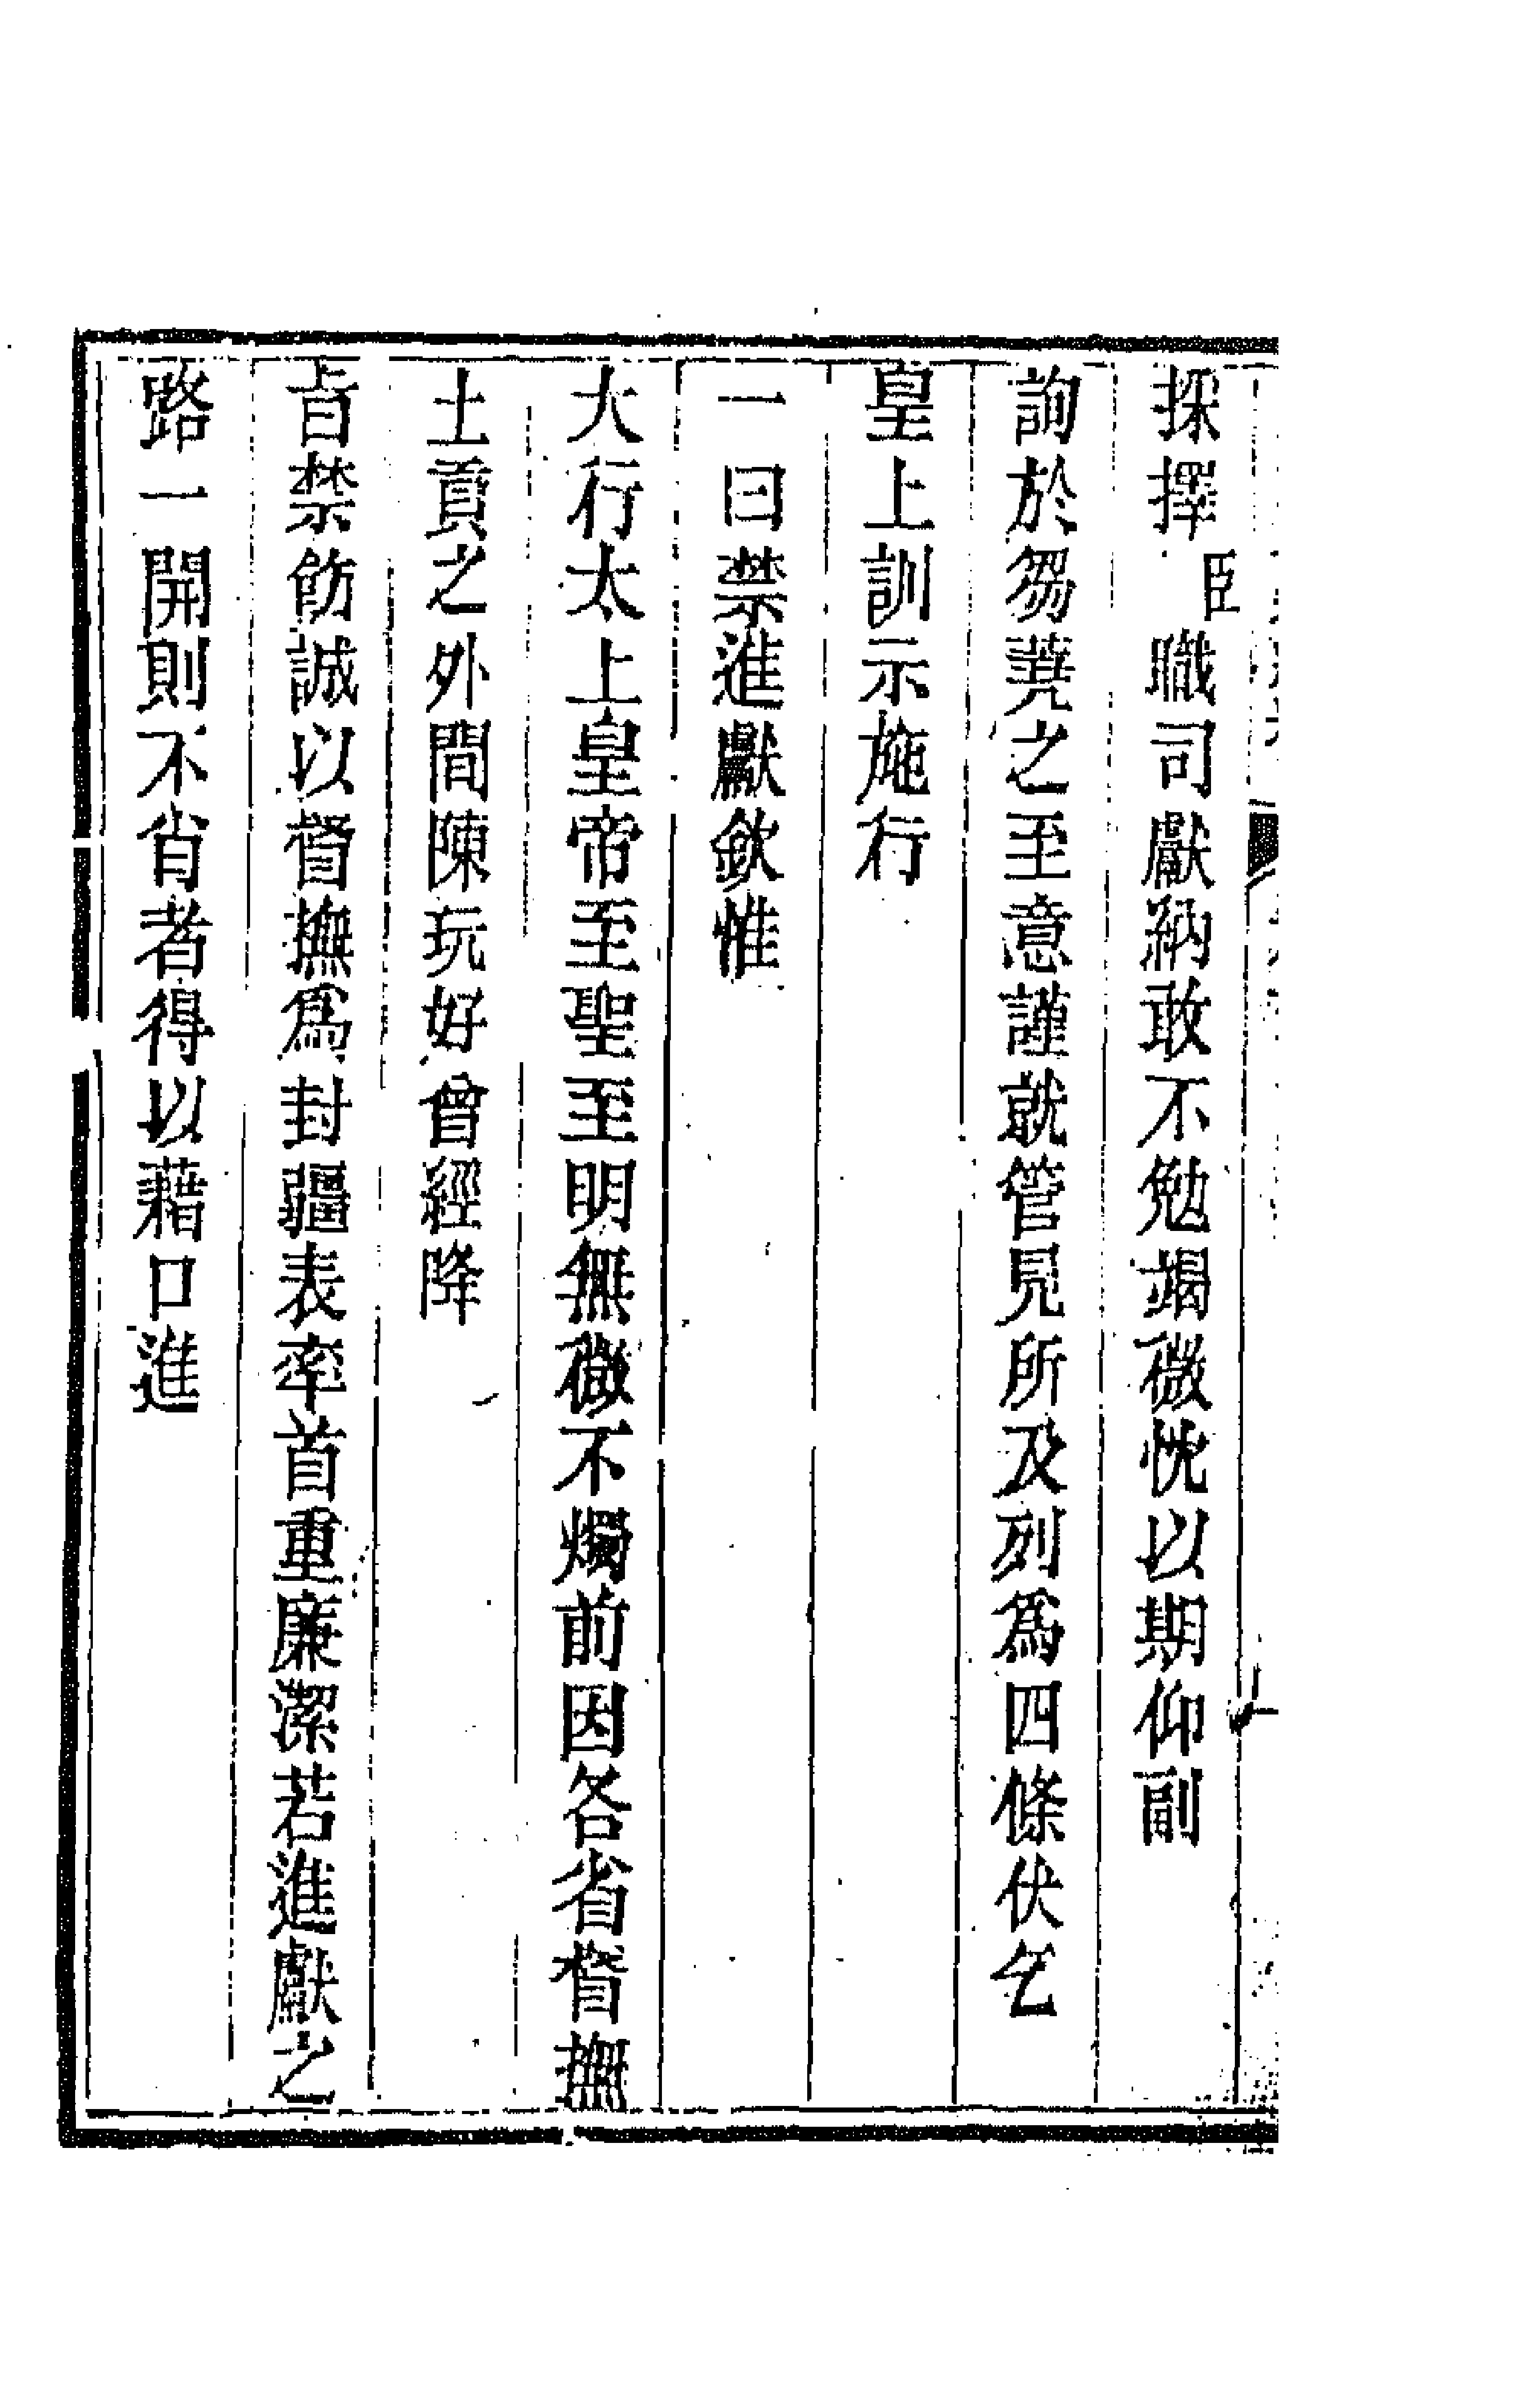 採擇臣職司獻納敢不勉竭微忱以期仰副
詢於芻蕘之至意謹就管見所及列爲四條伏乞
皇上訓示施行
一曰禁進獻欽惟
大行太上皇帝至聖至明無微不燭前因各省督撫
土貢之外間陳玩好曾經降
旨禁飭誠以督撫爲封疆表率首重廉潔若進獻之
路一開則不肖者得以藉口進